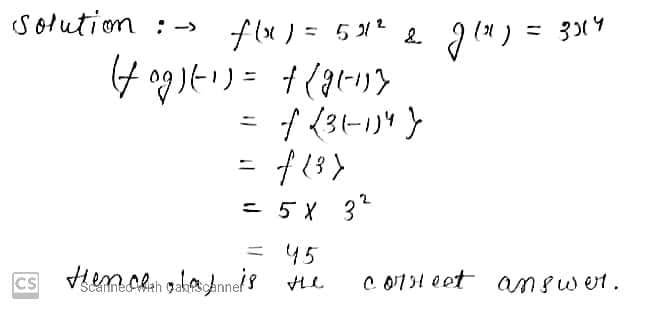 Solution : → f(x) = 5x² & g(x) = 3x⁴
(f og)(-1) = f{g(-1)}
= f{3(-1)⁴}
= f{3}
= 5 X 3²
= 45
Hence, (a) is the correct answer.
CS Scanned with CamScanner